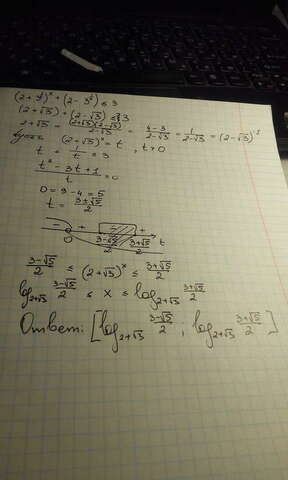 (2+3^½)^x + (2-3^½)^x ≤ 3
(2+√3)^x + (2-√3)^x ≤ 3
2+√3 = (2+√3)(2-√3)/(2-√3) = (4-3)/(2-√3) = 1/(2-√3) = (2-√3)^-1
(2+√3)^x = t , t>0
t + 1/t = 3
(t² - 3t + 1)/t = 0
D = 9 - 4 = 5
t = (3±√5)/2
- + - +
0 (3-√5)/2 (3+√5)/2 t
(3-√5)/2 ≤ (2+√3)^x ≤ (3+√5)/2
log_{2+√3} (3-√5)/2 ≤ x ≤ log_{2+√3} (3+√5)/2
Ответ: [log_{2+√3} (3-√5)/2 ; log_{2+√3} (3+√5)/2]